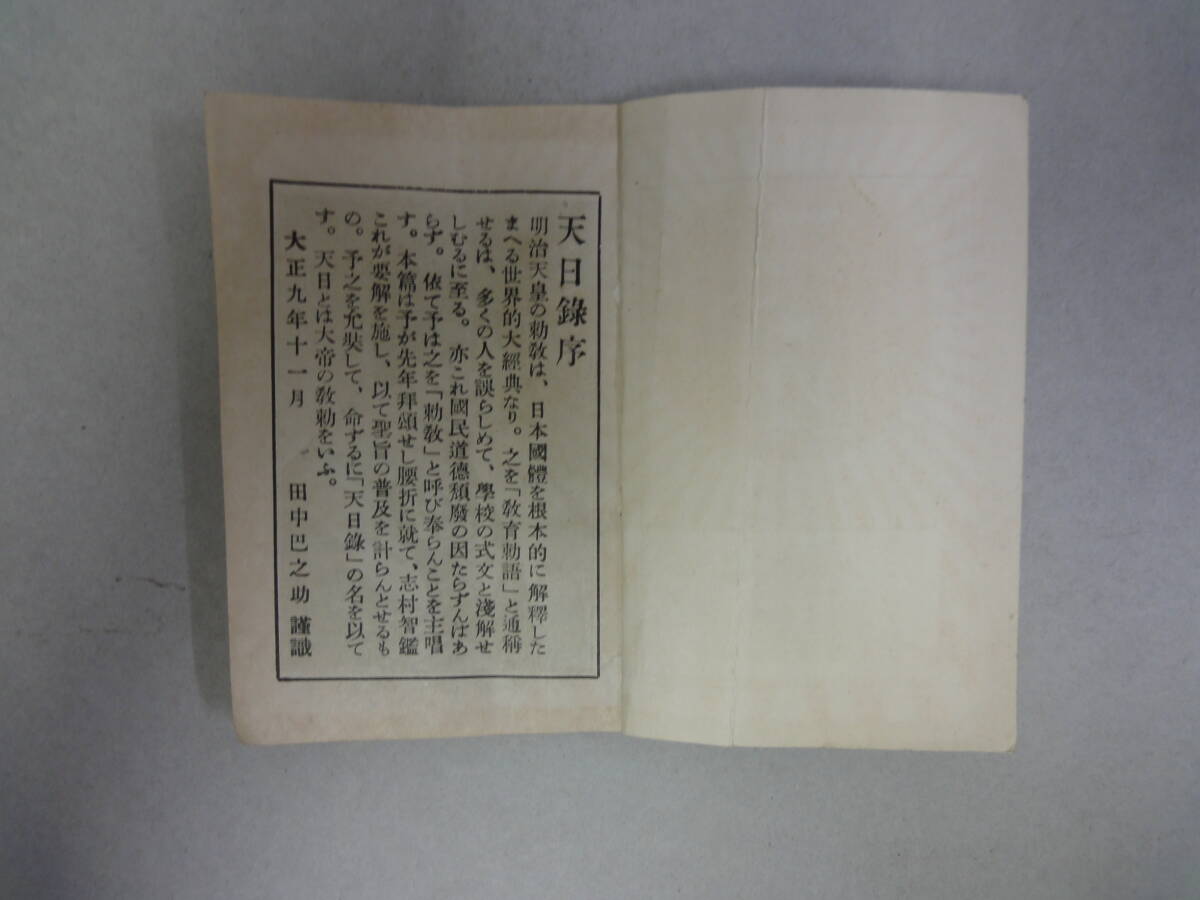 天日錄序
明治天皇の勅敎は、日本國體を根本的に解釋した
まへる世界的大經典なり。之を「敎育勅語」と通稱
せるは、多くの人を誤らしめて、學校の式文と淺解せ
しむるに至る。亦これ國民道德頽廢の因たらずんばあ
らず。依て予は之を「勅敎」と呼び奉らんことを主唱
す。本篇は予が先年拜頌せし腰折に就て、志村智鑑
これが要解を施し、以て聖旨の普及を計らんとせるも
の。予之を允奘して、命ずるに「天日錄」の名を以て
す。天日とは大帝の敎勅をいふ。
大正九年十一月 田中巴之助 謹識